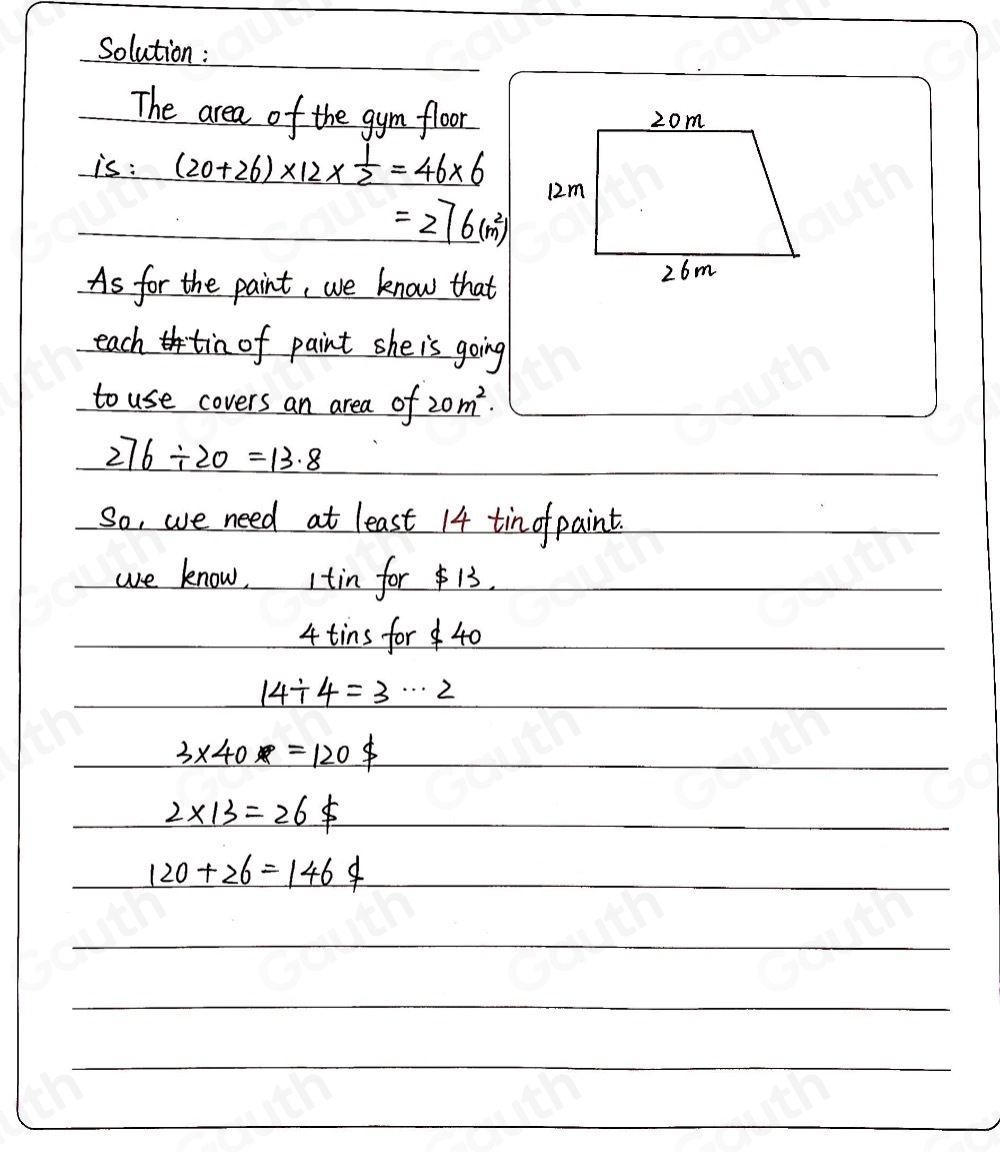 Solution:
The area of the gym floor
is: (20+26)×12×1/2 = 46×6
= 276(m²)
20m
12m
26m
As for the paint, we know that
each tin of paint she is going
to use covers an area of 20m².
276÷20 =13.8
So, we need at least 14 tin of paint.
we know, 1 tin for $13.
4 tins for $40
14÷4=3…2
3×40 =120 $
2×13=26 $
120+26=146 $
Gauth